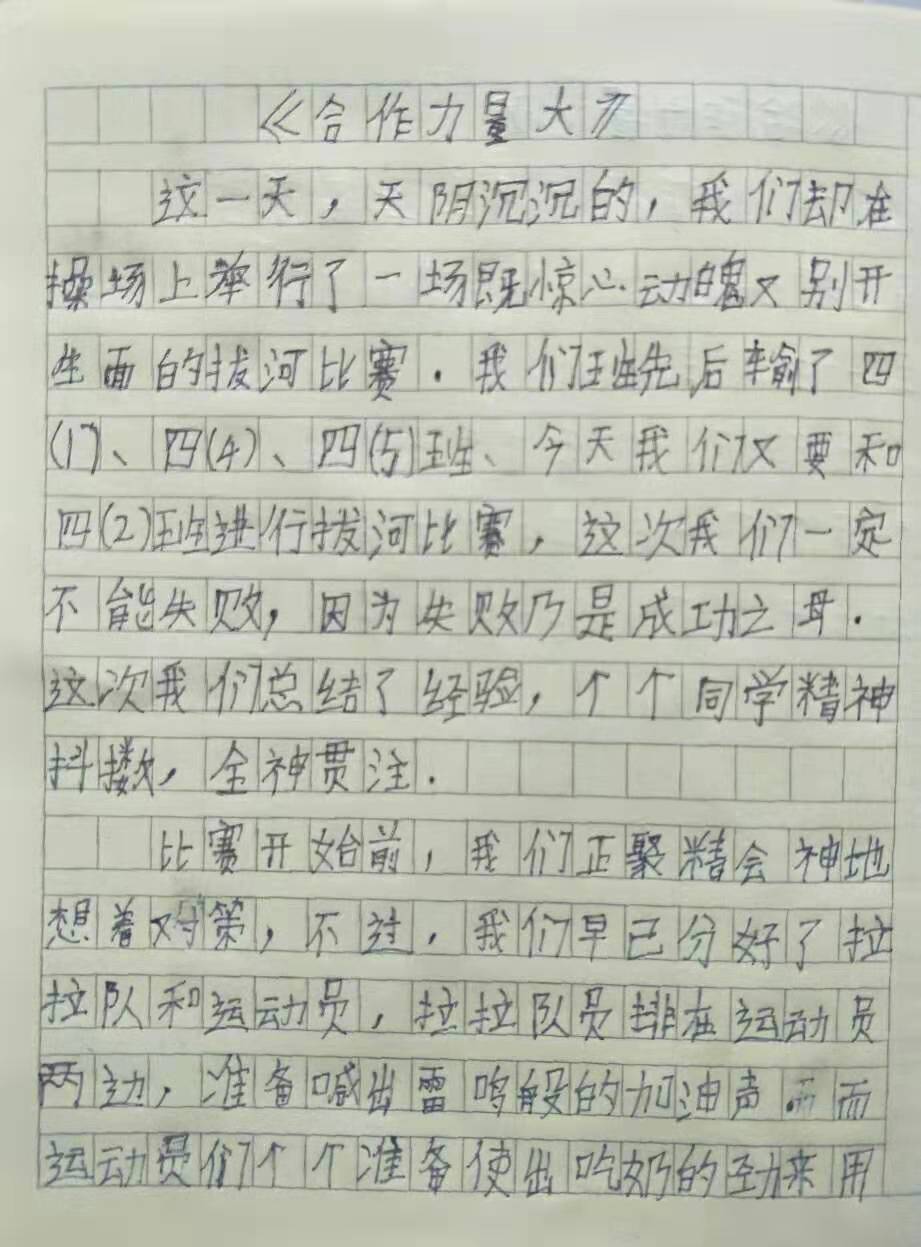 《合作力量大》
这一天，天阴沉沉的，我们却在
操场上举行了一场既惊心动魄又别开
生面的拔河比赛．我们班先后输了四
(1)、四(4)、四(5)班、今天我们又要和
四(2)班进行拔河比赛，这次我们一定
不能失败，因为失败乃是成功之母．
这次我们总结了经验，个个同学精神
抖擞，全神贯注．
比赛开始前，我们正聚精会神地
想着对策，不过，我们早已分好了拉
拉队和运动员，拉拉队员排在运动员
两边，准备喊出雷鸣般的加油声．而
运动员们个个准备使出吃奶的劲来用